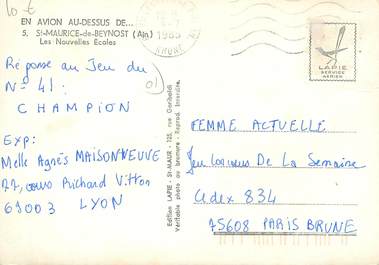 10 €
EN AVION AU-DESSUS DE...
5. St-MAURICE-de-BEYNOST (Ain)
Les Nouvelles Écoles
Réponse au Jeu du
N° 41 :
CHAMPION
01
Exp:
Melle Agnès MAISONNEUVE
77, cours Richard Vitton
69003 LYON
Edition LAPIE - St-MAUR - 125, rue Garibaldi
Véritable photo au bromure - Reprod. interdite.
RHONE
LAPIE
SERVICE
AERIEN
FEMME ACTUELLE
Jeu Logiciens De La Semaine
Cedex 834
75608 PARIS BRUNE